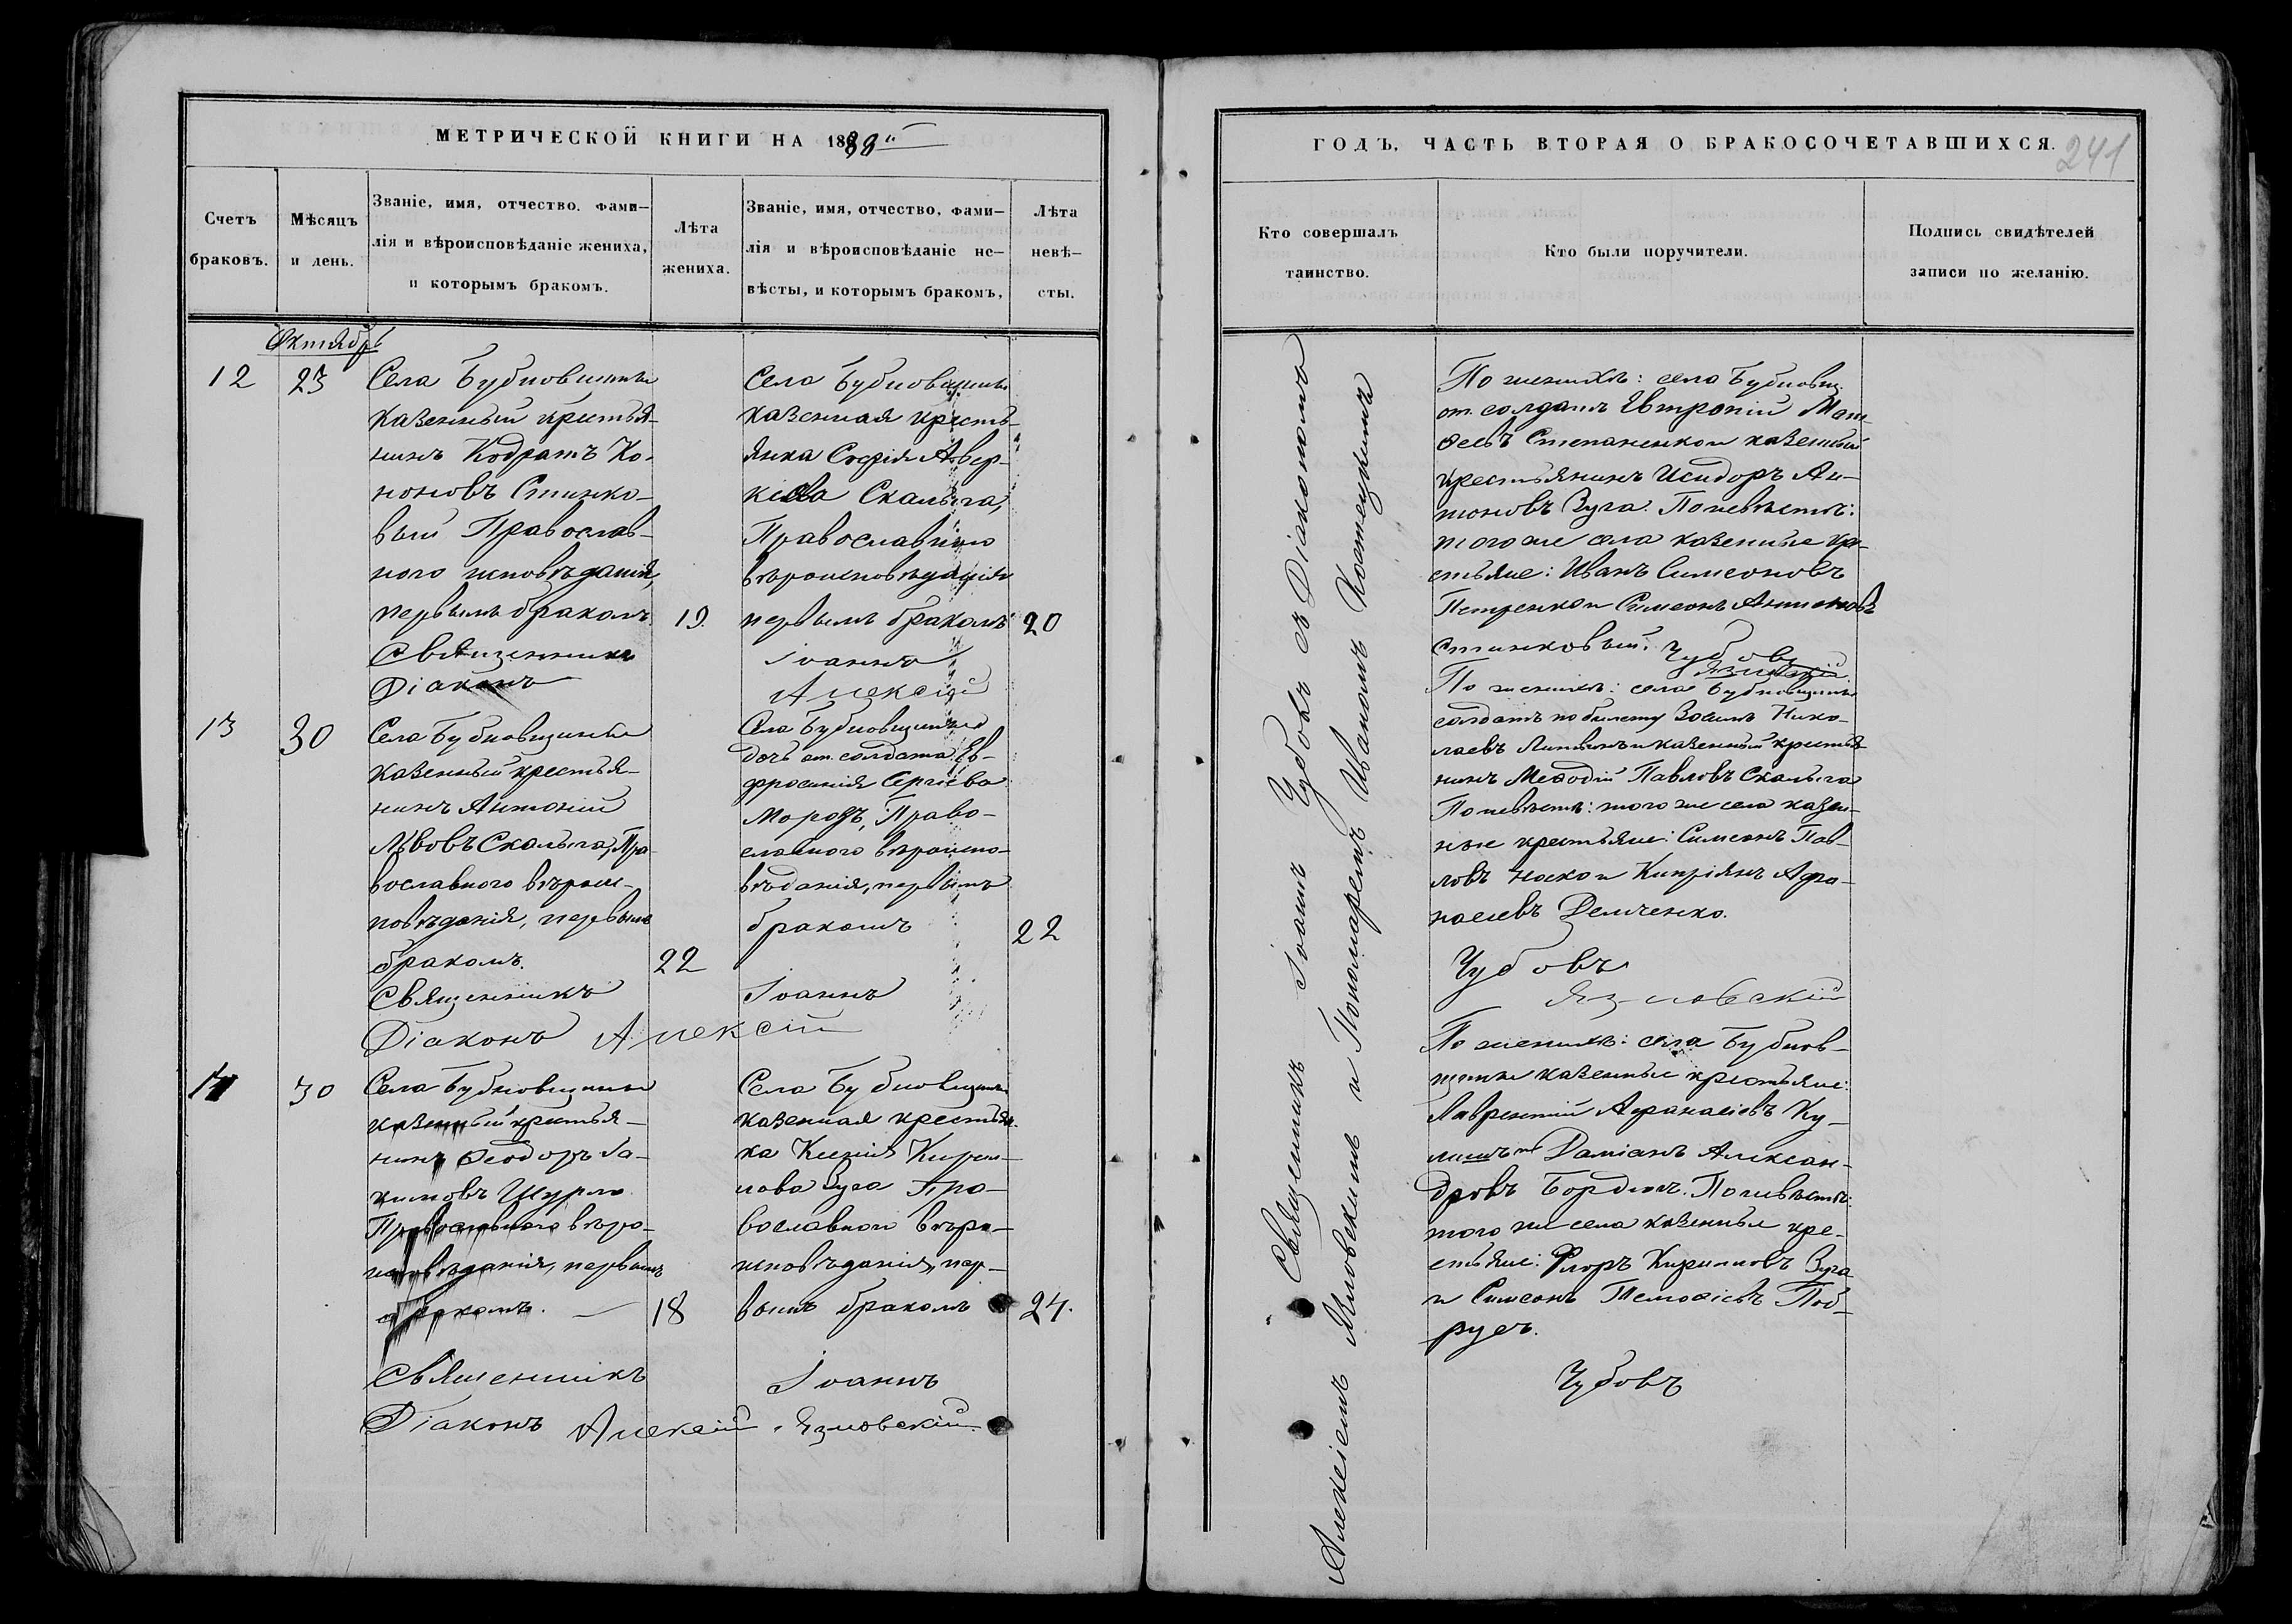 МЕТРИЧЕСКОЙ КНИГИ НА 1888
Счетъ браковъ.
Мѣсяцъ и день.
Званіе, имя, отчество, фами-
лія и вѣроисповѣданіе жениха,
и которымъ бракомъ.
Лѣта жениха.
Званіе, имя, отчество, фами-
лія и вѣроисповѣданіе не-
вѣсты, и которымъ бракомъ,
Лѣта невѣ-
сты.
Октябрь
12
23
Села Бубновщины
казенный крестья-
нинъ Кодратъ Ко-
ноновъ Стинко-
вый Православ-
ного исповѣданія,
первымъ бракомъ
19.
Села Бубновщины
казенная кресть-
янка Софія Авер-
кіева Скалыга,
Православного
вѣроисповѣданія
первымъ бракомъ
20
Священникъ Іоаннъ
Діаконъ Алексій
13
30
Села Бубновщины
казенный крестья-
нинъ Антоній
Львовъ Скалыга, Пра-
вославного вѣроис-
повѣданія, первымъ
бракомъ.
22
Села Бубновщины
дочь от. солдата Ев-
фросинія Сергіева
Морозъ, Право-
славного вѣроиспо-
вѣданія, первымъ
бракомъ
22
Священникъ Іоаннъ
Діаконъ Алексій
14
30
Села Бубновщины
казенный крестья-
нинъ Ѳеодоръ Іа-
кимовъ Шурло
Православного вѣро-
исповѣданія, первымъ
бракомъ.
18
Села Бубновщины
казенная крестьян-
ка Ксенія Кирил-
лова Зуга Пра-
вославного вѣро-
исповѣданія, пер-
вымъ бракомъ
24.
Священникъ Іоаннъ
Діаконъ Алексій Язловскій
ГОДЪ, ЧАСТЬ ВТОРАЯ О БРАКОСОЧЕТАВШИХСЯ.
241
Кто совершалъ таинство.
Кто были поручители.
Подпись свидѣтелей
записи по желанію.
Священникъ Іоаннъ Чубовъ съ Діакономъ
Алексіемъ Язловскимъ и Пономаремъ Иваномъ Костецкимъ
По женихѣ: села Бубновщ.
от. солдатъ Евтропій Мат-
ѳеевъ Степаненко и казенный
крестьянинъ Исидоръ Ан-
тоновъ Зуга. По невѣстѣ:
того же села казенные кре-
стьяне: Иванъ Симеоновъ
Петренко и Симеонъ Антоновъ
Стинковый.
Чубовъ
Язловскій
По женихѣ: села Бубновщины
солдатъ по билету Зосимъ Нико-
лаевъ Литвинъ и казенный крестья-
нинъ Меѳодій Павловъ Скалыга
По невѣстѣ: того же села казен-
ные крестьяне: Симеонъ Пав-
ловъ Носко и Кипріянъ Афа-
насіевъ Демченко.
Чубовъ
Язловскій
По женихѣ: села Бубнов-
щины казенные крестьяне:
Лаврентій Афанасіевъ Ку-
лишъ и Даміанъ Алексан-
дровъ Бордюкъ. По невѣстѣ:
того же села казенные кре-
стьяне: Флоръ Кирилловъ Зуга
и Симеонъ Тимоѳіевъ Под-
русъ.
Чубовъ